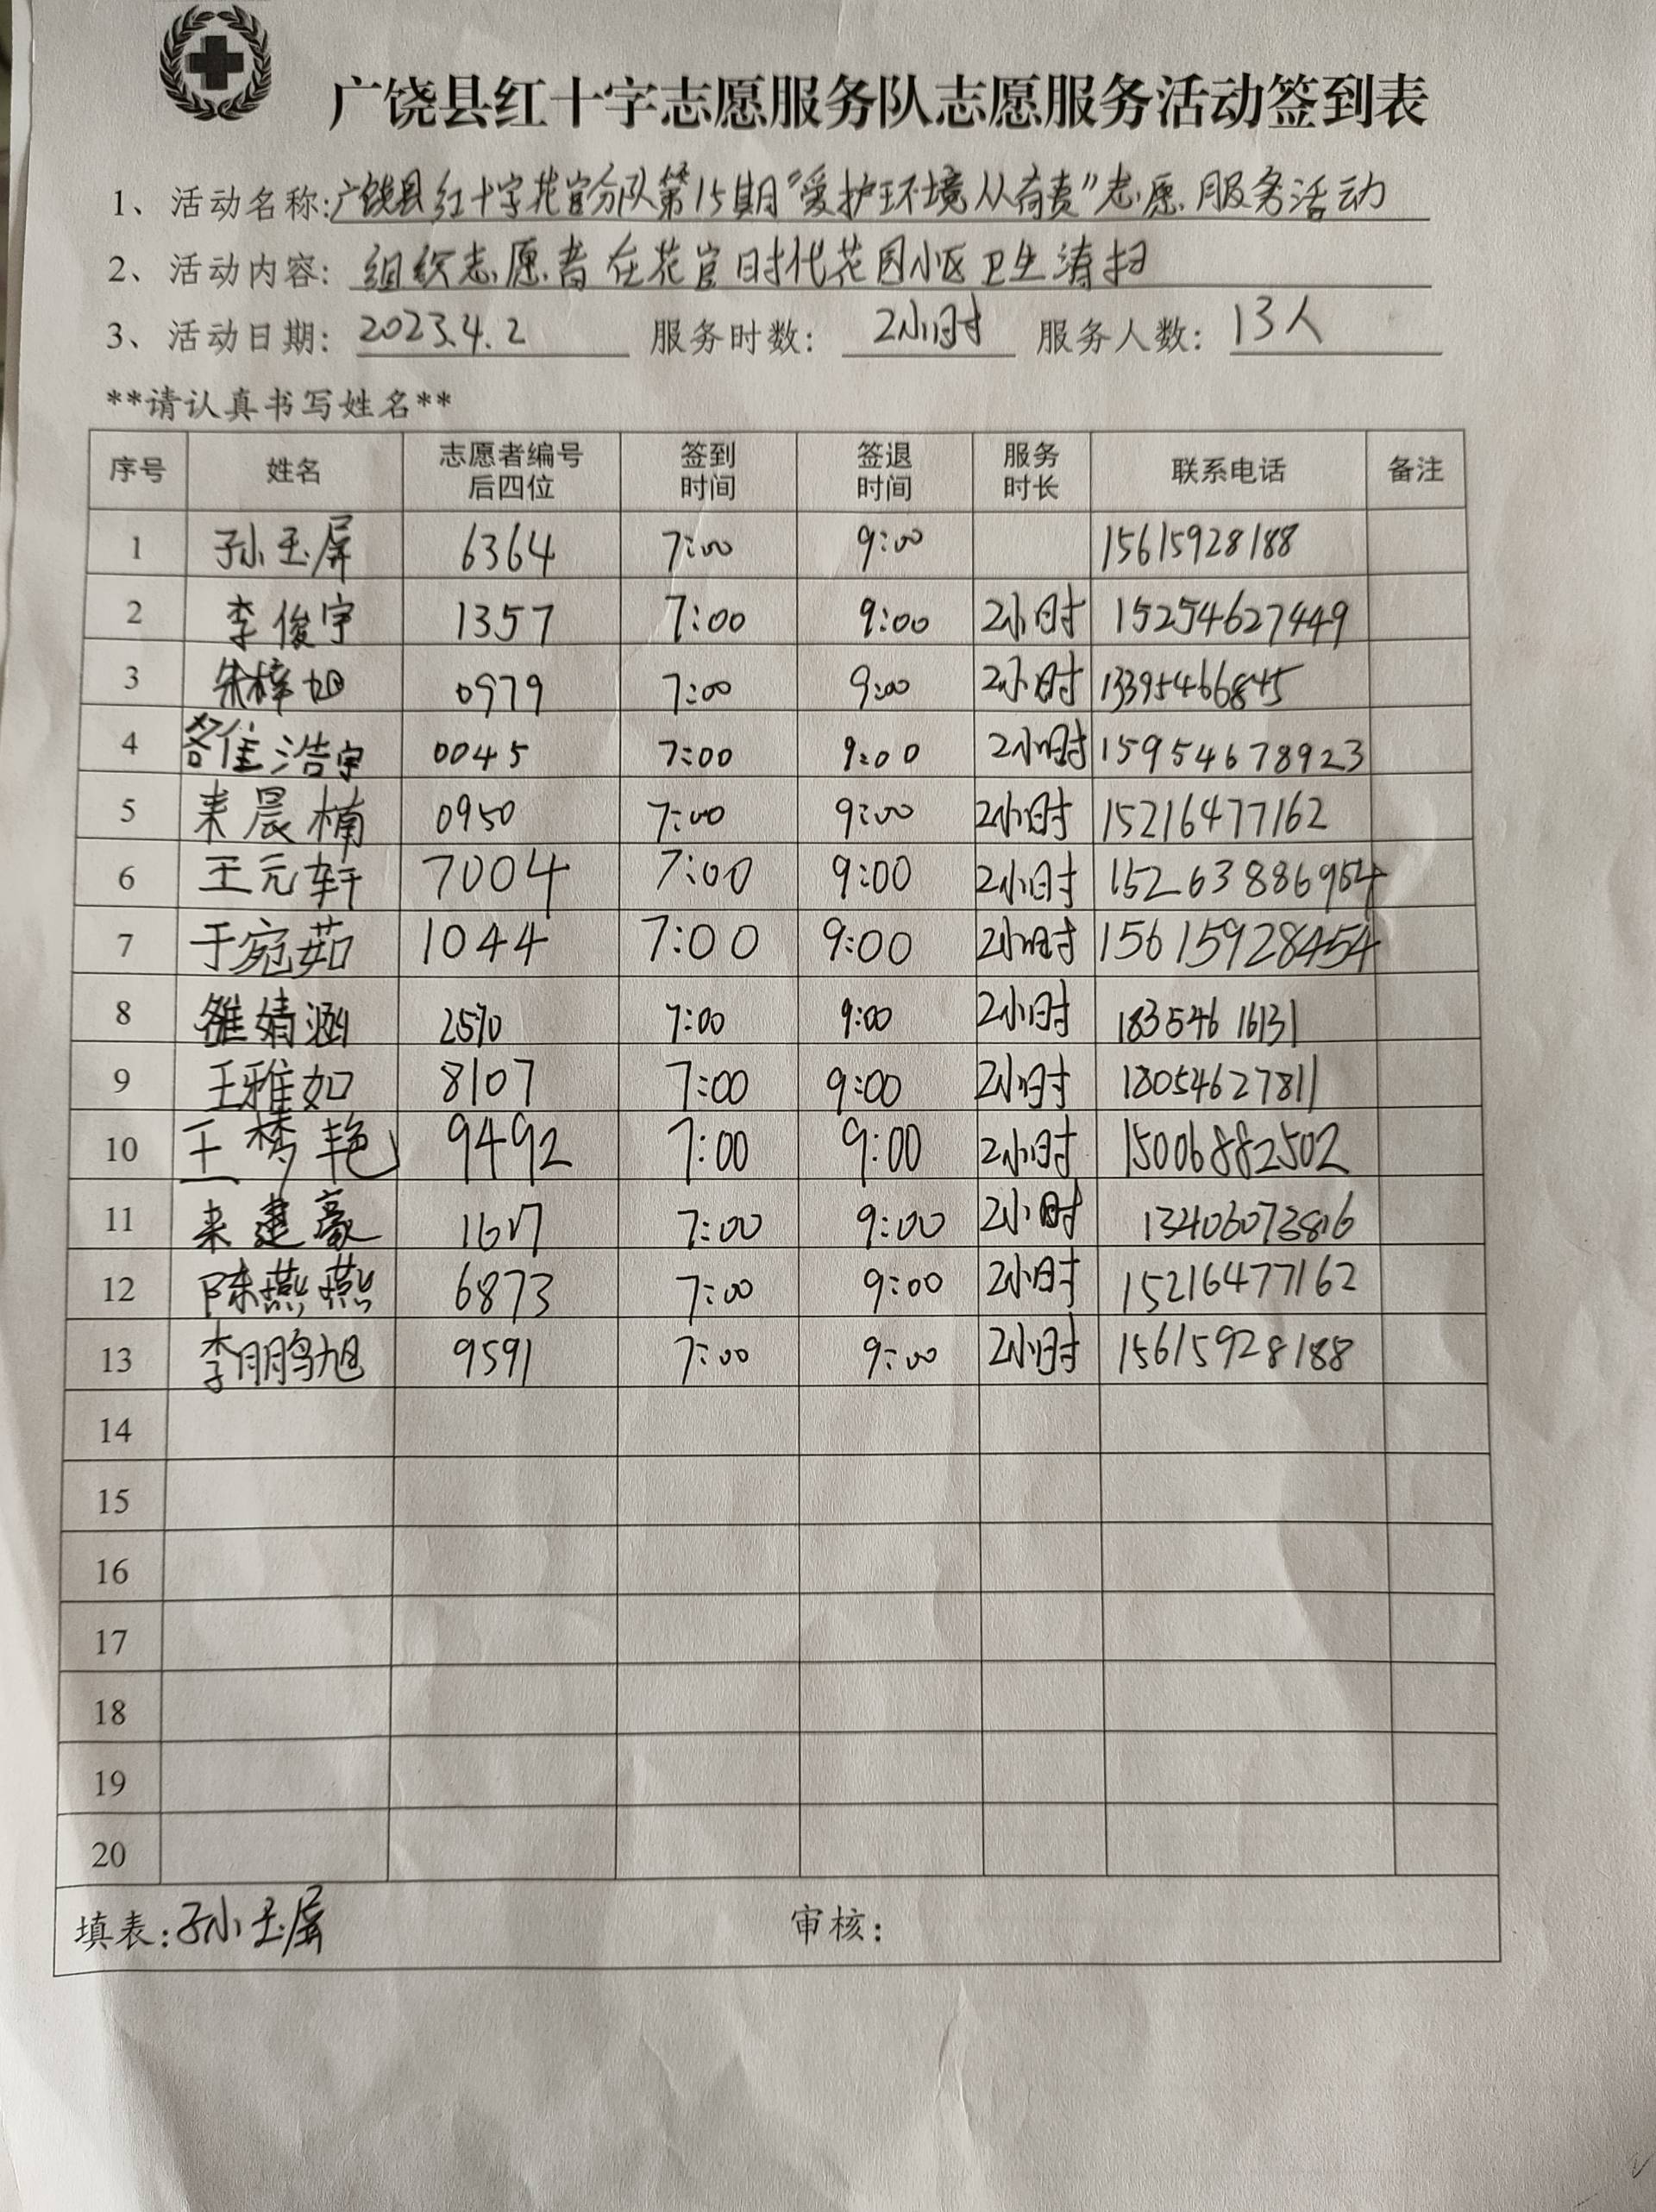 广饶县红十字志愿服务队志愿服务活动签到表
1、活动名称:广饶县红十字花官分队第15期"爱护环境 从有责"志愿服务活动
2、活动内容: 组织志愿者在花官时代花园小区卫生清扫
3、活动日期: 2023.4.2 服务时数: 2小时 服务人数: 13人
**请认真书写姓名**
序号 姓名 志愿者编号后四位 签到时间 签退时间 服务时长 联系电话 备注
1 孙玉屏 6364 7:00 9:00 15615928188
2 李俊宇 1357 7:00 9:00 2小时 15254627449
3 朱梓旭 0979 7:00 9:00 2小时 13395466845
4 浩宇 0045 7:00 9:00 2小时 15954678923
5 来晨楠 0950 7:00 9:00 2小时 15216477162
6 王元轩 7004 7:00 9:00 2小时 15263886964
7 于宛茹 1044 7:00 9:00 2小时 15615928454
8 婧涵 2570 7:00 9:00 2小时 18354616131
9 王雅如 8107 7:00 9:00 2小时 18054627811
10 王梦艳 9492 7:00 9:00 2小时 15006882502
11 来建豪 7:00 9:00 2小时 13406073816
12 陈燕燕 6873 7:00 9:00 2小时 15216477162
13 李鹏旭 9591 7:00 9:00 2小时 15615928188
14
15
16
17
18
19
20
填表:孙玉屏 审核: